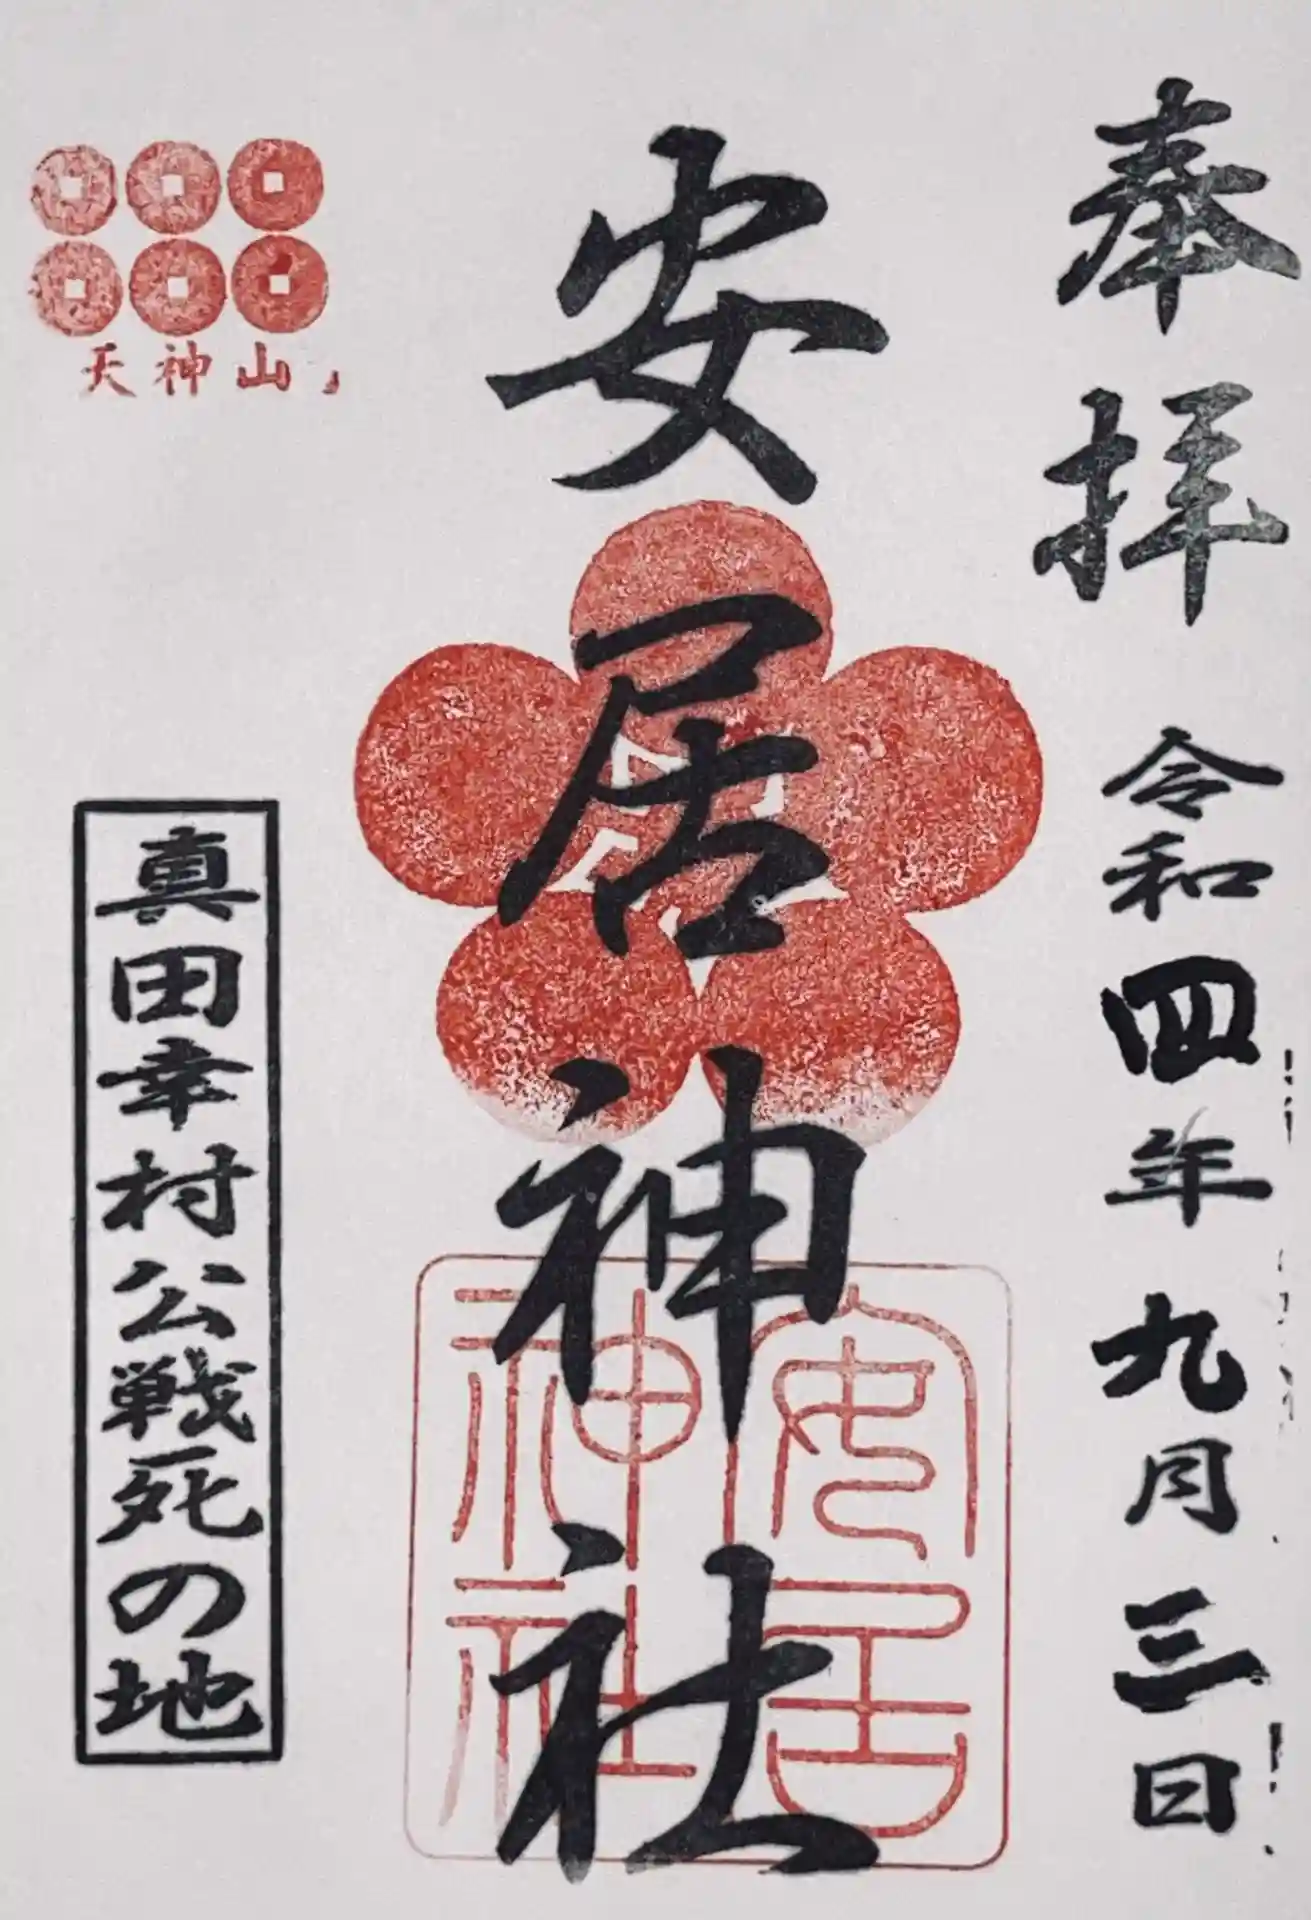 奉拝
令和四年九月三日
安居神社
安居
神社
天神山
真田幸村公戦死の地